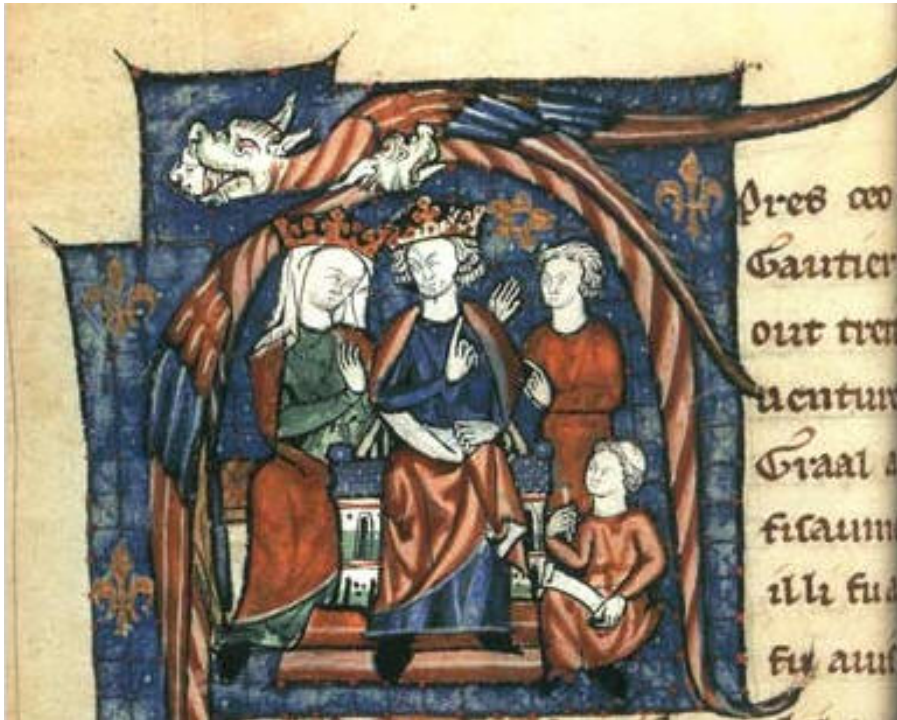 pres ceo
Gautier
out tret
uenture
Graal a
fisaum
illi fu
fu auis